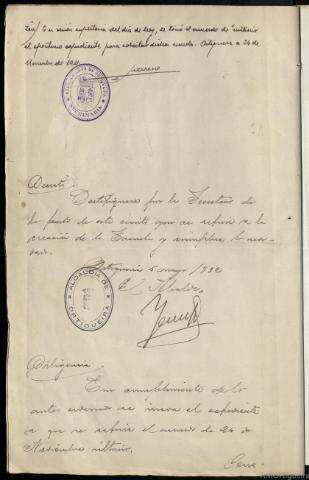 En sesión supletoria del día de hoy, se tomó el acuerdo de instruir
el oportuno expediente para solicitar dicha escuela. Ortigueira a 24 de
Noviembre de 1931.
SECRETARÍA
Decreto
Certifíquese por la Secretaría de
la parte de este escrito que se refiere a la
creación de la Escuela y cúmplase lo acor-
dado.
Ortigueira 5 mayo 1932
El Alcalde,
ALCALDIA DE
ORTIGUEIRA
Diligencia
En cumplimiento de lo
antes ordenado se inicia el expediente
a que se refiere el acuerdo de 24 de
Noviembre último.